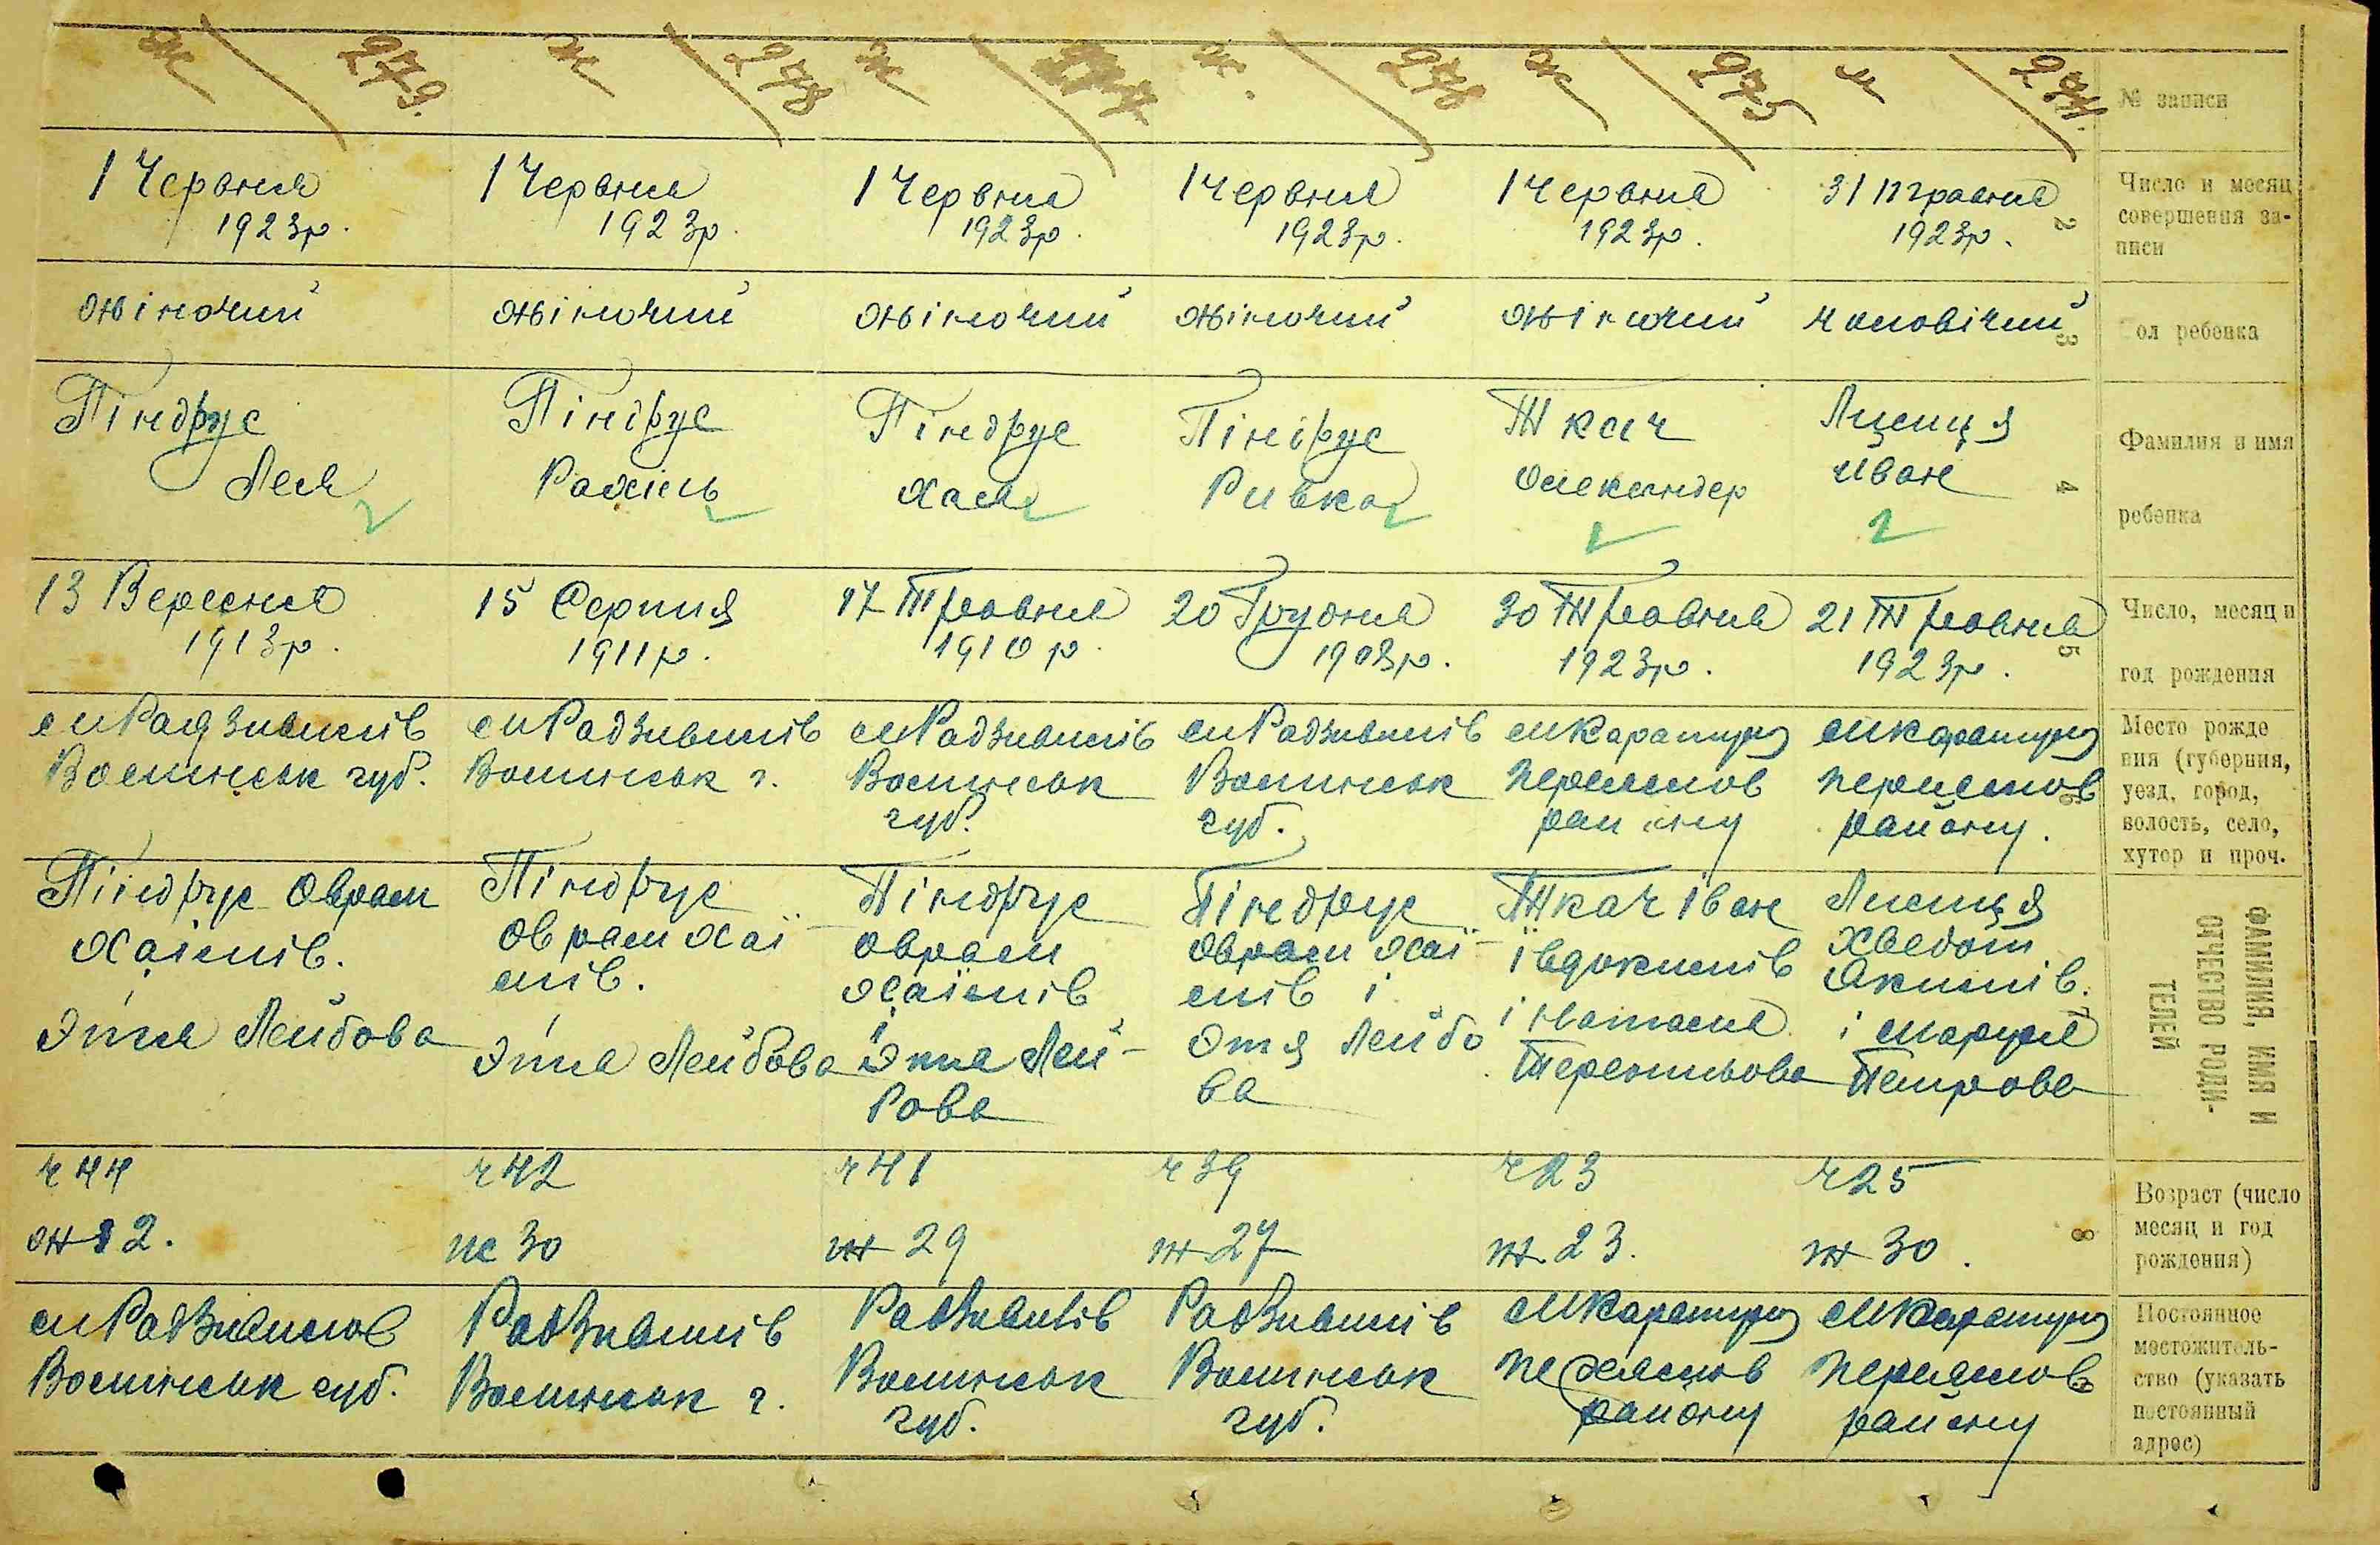 ж 279. ж 278 ж 277 ж. 278 ж 275 м 274.
№ записи
1 Червня 1923р.
1 Червня 1923р.
1 Червня 1923р.
1 Червня 1923р.
1 Червня 1923р.
31 Травня 1923р.
2
Число и месяц
совершения за-
писи
жіночий
жіночий
жіночий
жіночий
жіночий
чоловічий
3
ол ребенка
Піндрус
Лея
Піндрус
Рахіль
Піндрус
Хая
Піндрус
Ривка
Ткач
Олександер
Лисиця
Иван
4
Фамилия и имя
ребенка
13 Вересня
1913р.
15 Серпня
1911р.
17 Травня
1910р.
20 Грудня
1908р.
30 Травня
1923р.
21 Травня
1923р.
5
Число, месяц и
год рождения
м Радзивилів
Волинськ губ.
м Радзивилів
Волинськ г.
м Радзивилів
Волинськ
губ.
м Радзивилів
Волинськ
губ.
м Каратун
Переяслов
району
м Каратун
Переяслов
району.
Место рожде
ния (губерния,
уезд, город,
волость, село,
хутор и проч.
Піндрус Оврам
Хаімів.
і
Этля Лейбова
Піндрус
Оврам Хаї
мів.
і
Этля Лейбова
Піндрус
Оврам
Хаїмів
і
Этля Лей-
бова
Піндрус
Оврам Хаї-
мів і
Этля Лейбо
ва
Ткач Іван
Івдокимів
і Наталя
Терентьова
Лисиця
Хведот
Якимів.
і Маруся
Петрова
ФАМИЛИЯ, ИМЯ И
ОТЧЕСТВО РОДИ-
ТЕЛЕЙ
ч 44
ж 32.
ч 42
ж 30
ч 41
ж 29
ч 39
ж 27
ч 23
ж 23.
ч 25
ж 30.
8
Возраст (число
месяц и год
рождения)
м Радзивилов
Волинськ губ.
Радзивилів
Волинськ г.
Радзивилів
Волинськ
губ.
Радзивилів
Волинськ
губ.
м Каратун
Переяслов
району
м Каратун
Переяслов
району
Постоянное
местожитель-
ство (указать
постоянный
адрес)